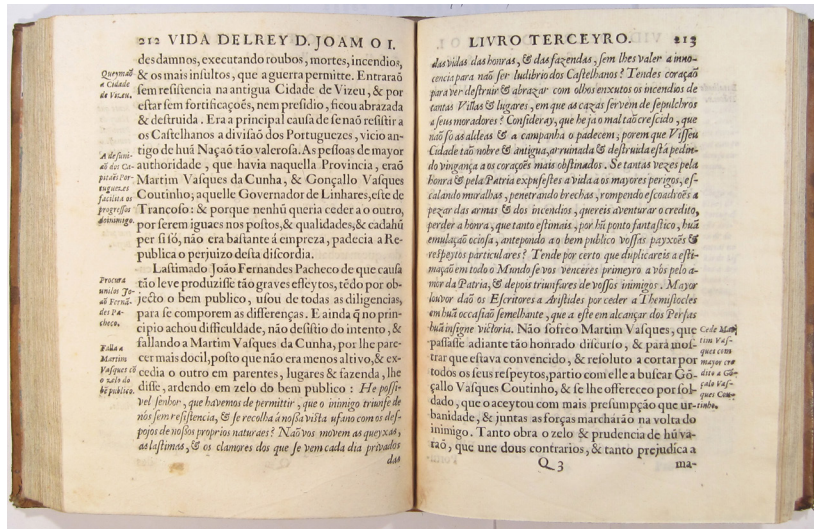 212 VIDA DELREY D. JOAM O I.
des damnos, executando roubos, mortes, incendios,
& os mais insultos, que a guerra permitte. Entraraõ
sem resistencia na antigua Cidade de Vizeu, & por
estar sem fortificaçoẽs, nem presidio, ficou abrazada
& destruida. Era a principal causa de se naõ resistir a
os Castelhanos a divisaõ dos Portuguezes, vicio an-
tigo de hũa Naçaõ taõ valerosa. As pessoas de mayor
authoridade, que havia naquella Provincia, eraõ
Martim Vasques da Cunha, & Gonçallo Vasques
Coutinho; aquelle Governador de Linhares, este de
Trancoso: & porque nenhũ queria ceder a o outro,
por serem iguaes nos postos, & qualidades, & cada hũ
per si só, não era bastante á empreza, padecia a Re-
publica o perjuizo desta discordia.
Lastimado João Fernandes Pacheco de que causa
tão leve produzisse tão graves effeytos, tẽdo por ob-
jecto o bem publico, usou de todas as diligencias,
para se comporem as differenças. E ainda q̃ no prin-
cipio achou difficuldade, não desistio do intento, &
fallando a Martim Vasques da Cunha, por lhe pare-
cer mais docil, posto que não era menos altivo, & ex-
cedia o outro em parentes, lugares & fazenda, lhe
disse, ardendo em zelo do bem publico: He possi-
vel senhor, que havemos de permittir, que o inimigo triunfe de
nós sem resistencia, & se recolha á nossa vista ufano com os des-
pojos de nossos proprios naturaes? Naõ vos movem as queyxas,
as lastimas, & os clamores dos que se vem cada dia privados
das
Queymaõ
a Cidade
de Vizeu.
A desuni-
aõ dos Ca-
pitaẽs Por-
tuguezes
facilita os
progressos
do inimigo.
Procura
unilos Jo-
aõ Fernã-
des Pa-
checo.
Falla a
Martim
Vasques cõ
o zelo do
bẽ publico.
LIVRO TERCEYRO. 213
das vidas das honras, & das fazendas, sem lhes valer a inno-
cencia para naõ ser ludibrio dos Castelhanos? Tendes coraçaõ
para ver destruir & abrazar com olhos enxutos os incendios de
tantas Villas & lugares, em que as cazas servem de sepulchros
a seus moradores? Consideray, que he ja o mal taõ crescido, que
naõ so as aldeas & a campanha o padecem, porem que Visseu
Cidade taõ nobre & antigua, arruinada & destruida està pedin-
do vingança a os coraçoẽs mais obstinados. Se tantas vezes pela
honra & pela Patria expusestes a vida a os mayores perigos, es-
calando muralhas, penetrando brechas, rompendo esçoadroẽs a
pezar das armas & dos incendios, quereis aventurar o credito,
perder a honra, que tanto estimais, por hũ ponto fantastico, huã
emulaçaõ ociosa, antepondo ao bem publico vossas payxoẽs &
respeytos particulares? Tende por certo que duplicareis a esti-
maçaõ em todo o Mundo se vos venceres primeyro a vòs pelo a-
mor da Patria, & depois triunfares de vossos inimigos. Mayor
louvor daõ os Escritores a Aristides por ceder a Themistocles
em huã occasiaõ semelhante, que a este em alcançar dos Persas
huã insigne victoria. Não sofreo Martim Vasques, que
passasse adiante tão honrado discurso, & para mos-
trar que estava convencido, & resoluto a cortar por
todos os seus respeytos, partio com elle a buscar Gõ-
çallo Vasques Coutinho, & se lhe offereceo por sol-
dado, que o aceytou com mais presumpção que ur-
banidade, & juntas as forças marcharão na volta do
inimigo. Tanto obra o zelo & prudencia de hũ va-
raõ, que une dous contrarios, & tanto prejudica a
Q 3 ma-
Cede Mar-
tim Vas-
ques com
mayor cre
dito a Gõ-
çalo Vas-
ques Cou-
tinho.